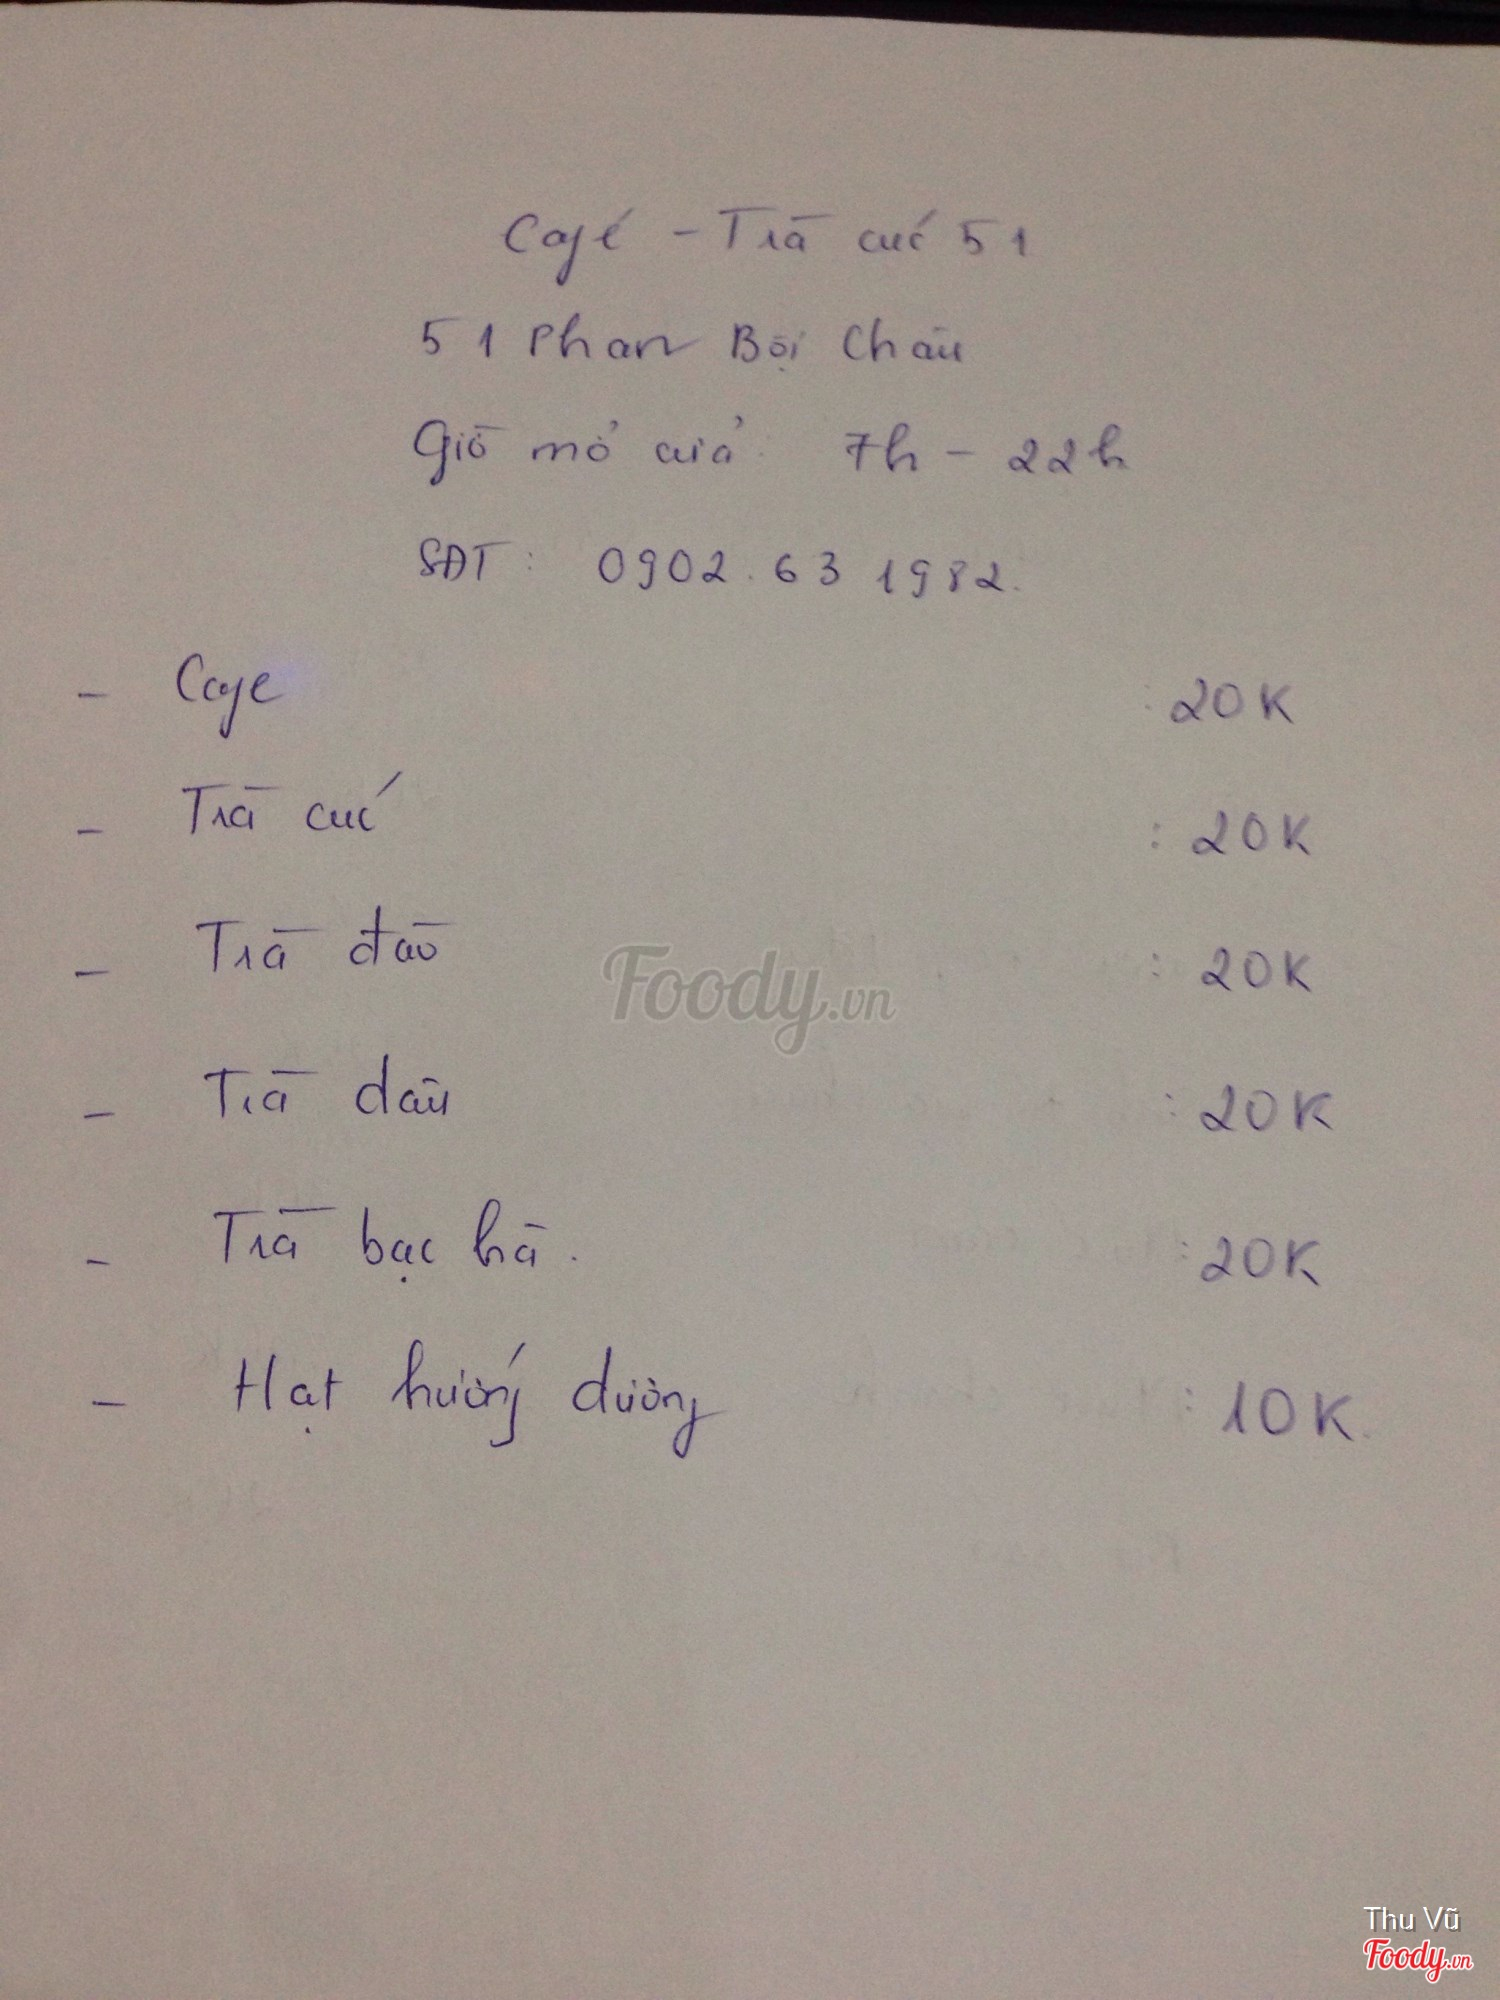 Café - Trà cúc 51
51 Phan Bội Châu
Giờ mở cửa: 7h - 22h
SĐT: 0902.63 1982.
- Cafe : 20K
- Trà cúc : 20K
- Trà đào : 20K
Foody.vn
- Trà dâu : 20K
- Trà bạc hà. : 20K
- Hạt hướng dương : 10K.
Thu Vũ
Foody.vn